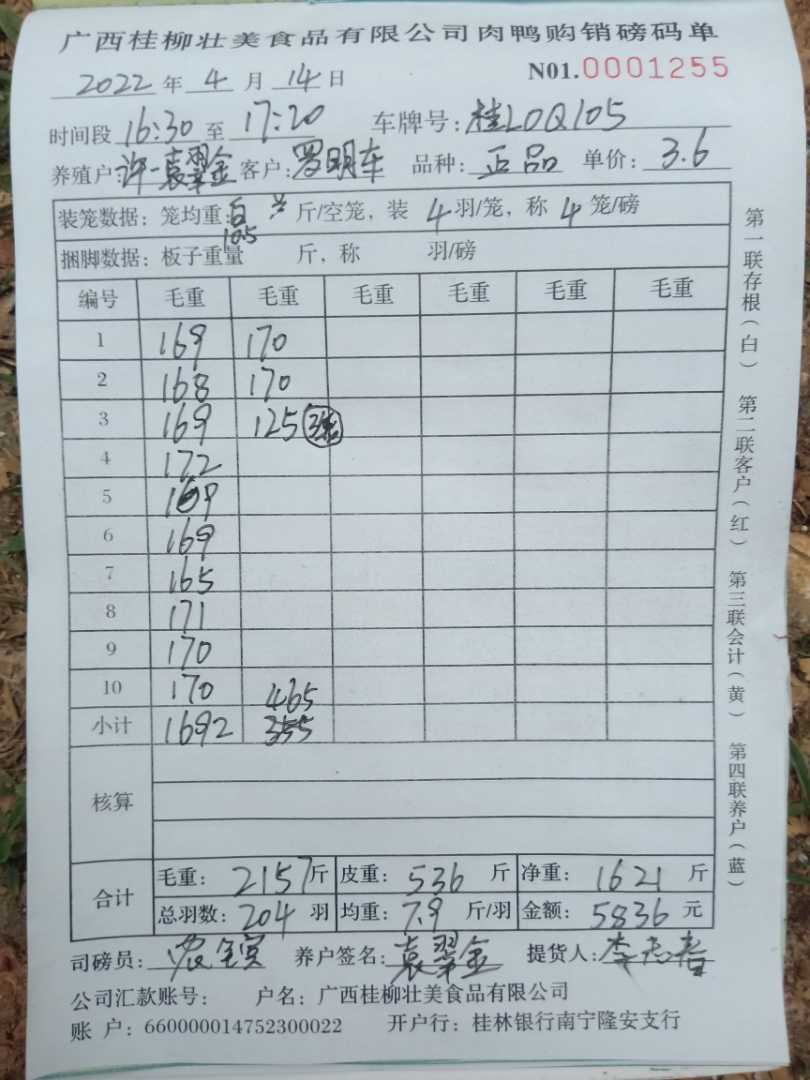 广西桂柳壮美食品有限公司肉鸭购销磅码单
2022 年 4 月 14 日 N01.0001255
时间段 16:30 至 17:20 车牌号: 桂L0Q105
养殖户 许一袁翠金 客户: 罗明车 品种: 正品 单价: 3.6
装笼数据: 笼均重: 白 斤/空笼, 装 4 羽/笼, 称 4 笼/磅
10.5
捆脚数据: 板子重量 斤, 称 羽/磅
编号 毛重 毛重 毛重 毛重 毛重 毛重
1 169 170
2 168 170
3 169 125
4 172
5 169
6 169
7 165
8 171
9 170
10 170 465
小计 1692 355
核算
合计 毛重: 2157 斤 皮重: 536 斤 净重: 1621 斤
总羽数: 204 羽 均重: 7.9 斤/羽 金额: 5836 元
司磅员: 养户签名: 袁翠金 提货人:
公司汇款账号: 户名: 广西桂柳壮美食品有限公司
账 户: 660000014752300022 开户行: 桂林银行南宁隆安支行
第一联存根(白) 第二联客户(红) 第三联会计(黄) 第四联养户(蓝)